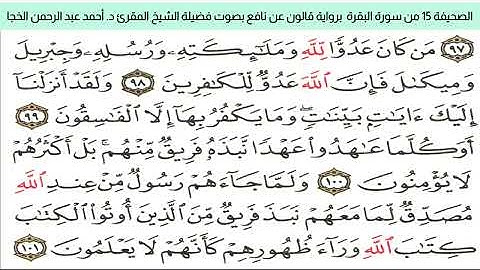 الصحيفة 15 من سورة البقرة برواية قالون عن نافع بصوت فضيلة الشيخ المقرئ د. أحمد عبد الرحمن الخجا
٩٧ مَن كَانَ عَدُوّٗا لِّلَّهِ وَمَلَٰٓئِكَتِهِۦ وَرُسُلِهِۦ وَجِبْرِيلَ
وَمِيكَٰٓئِلَ فَإِنَّ اَللَّهَ عَدُوّٞ لِّلْكَٰفِرِينَ ٩٨ وَلَقَدْ أَنزَلْنَا
إِلَيْكَ ءَايَٰتِۭ بَيِّنَٰتٖ وَمَا يَكْفُرُ بِهَا إِلَّا اَلْفَٰسِقُونَ ٩٩
أَوَكُلَّمَا عَٰهَدُواْ عَهْدٗا نَّبَذَهُۥ فَرِيقٞ مِّنْهُم بَلْ أَكْثَرُهُمْ
لَا يُؤْمِنُونَ ١٠٠ وَلَمَّا جَآءَهُمْ رَسُولٞ مِّنْ عِندِ اِللَّهِ
مُصَدِّقٞ لِّمَا مَعَهُمْ نَبَذَ فَرِيقٞ مِّنَ اَلَّذِينَ أُوتُواْ اُلْكِتَٰبَ
كِتَٰبَ اَللَّهِ وَرَآءَ ظُهُورِهِمْ كَأَنَّهُمْ لَا يَعْلَمُونَ ١٠١